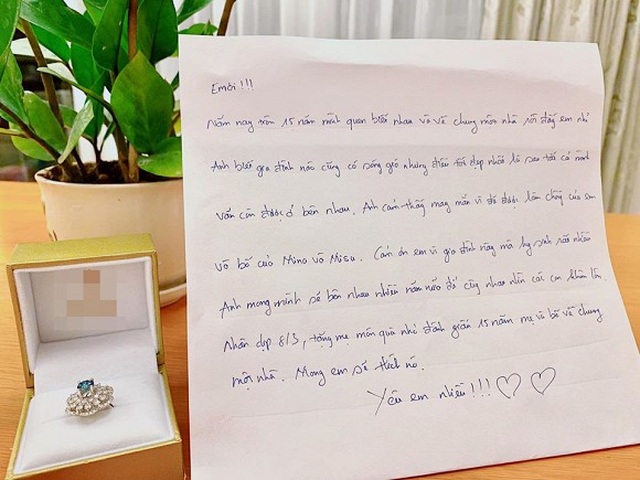 Em ơi!!!
Năm nay tròn 15 năm mình quen biết nhau và về chung một nhà rồi đấy em nhỉ
Anh biết gia đình nào cũng có sóng gió nhưng điều tốt đẹp nhất là sau tất cả mình
vẫn còn được ở bên nhau. Anh cảm thấy may mắn vì đã được làm chồng của em
và bố của Mina và Misu. Cảm ơn em vì gia đình này mà hy sinh rất nhiều
Anh mong mình sẽ bên nhau nhiều năm nữa để cùng nhau nhìn các con khôn lớn.
Nhân dịp 8/3, tặng mẹ món quà nhỏ đánh giấu 15 năm mẹ và bố về chung
một nhà. Mong em sẽ thích nó.
Yêu em nhiều!!! ♡ ♡